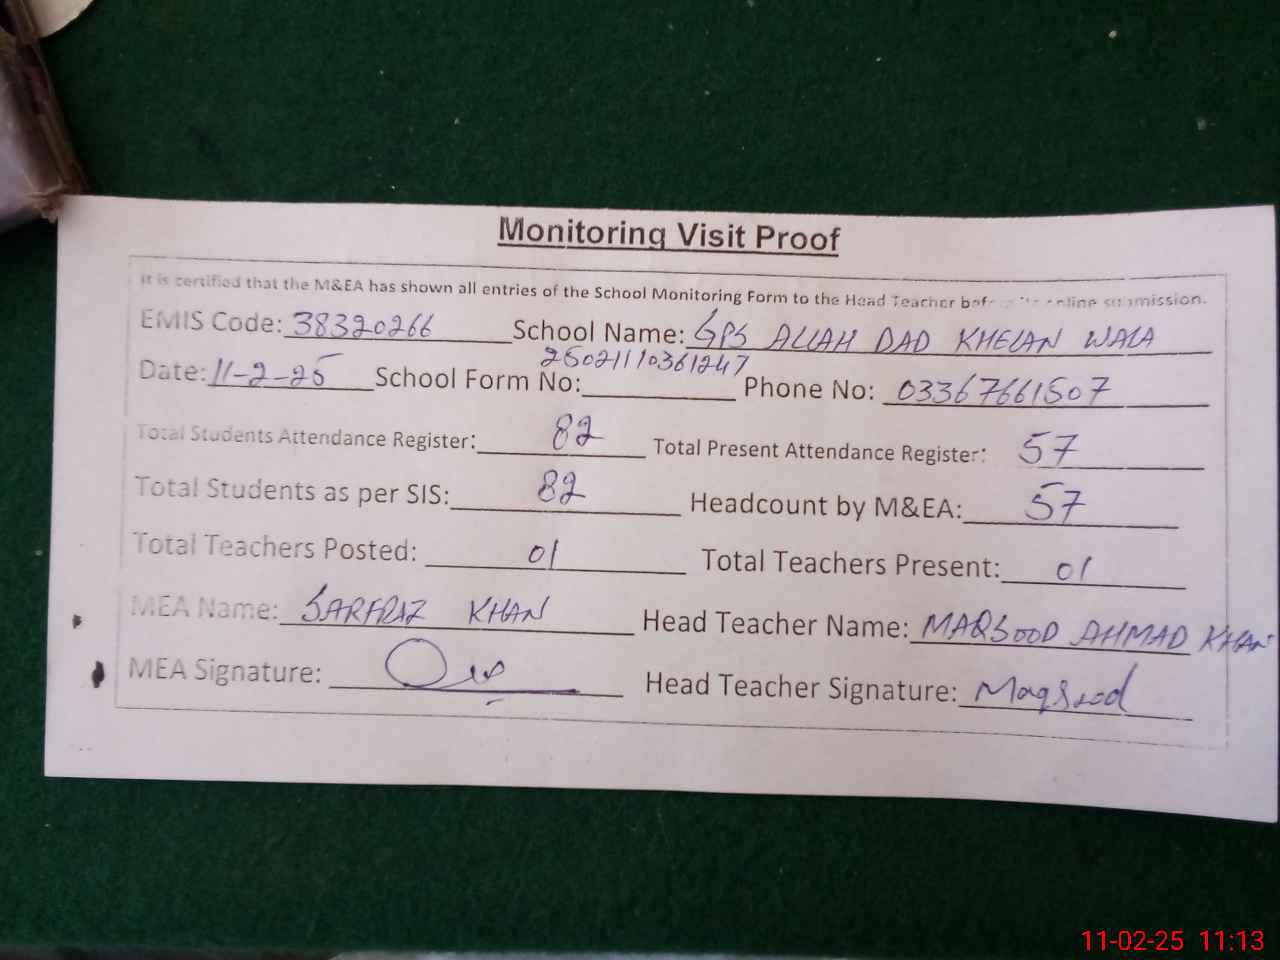 Monitoring Visit Proof
It is certified that the M&EA has shown all entries of the School Monitoring Form to the Head Teacher before its online submission.
EMIS Code: 38320266 School Name: GPS ALLAH DAD KHELAN WALA
Date: 11-2-25 School Form No: 25021110361247 Phone No: 03367661507
Total Students Attendance Register: 82 Total Present Attendance Register: 57
Total Students as per SIS: 82 Headcount by M&EA: 57
Total Teachers Posted: 01 Total Teachers Present: 01
MEA Name: SARFRAZ KHAN Head Teacher Name: MAQSOOD AHMAD KHAN
MEA Signature: Head Teacher Signature: Maqsood
11-02-25 11:13